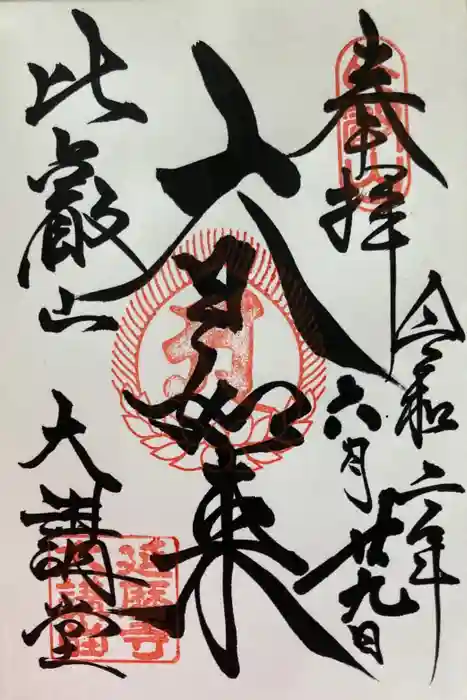 奉拝
令和二年
六月廿九日
大日如来
比叡山
大講堂
延暦寺
大講堂